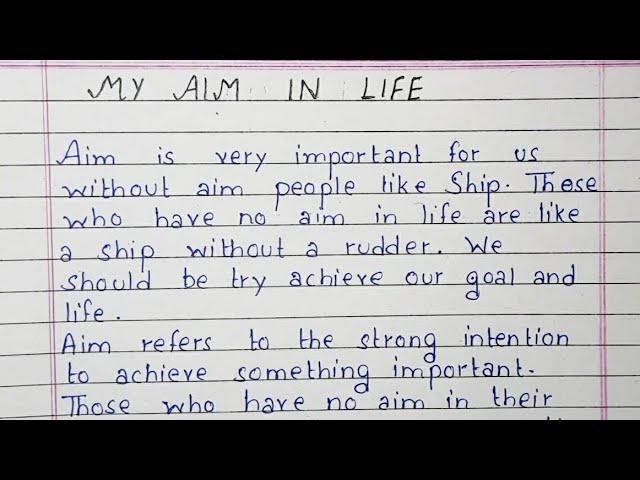 MY AIM IN LIFE
Aim is very important for us
without aim people like Ship. These
who have no aim in life are like
a ship without a rudder. We
should be try achieve our goal and
life.
Aim refers to the strong intention
to achieve something important.
Those who have no aim in their